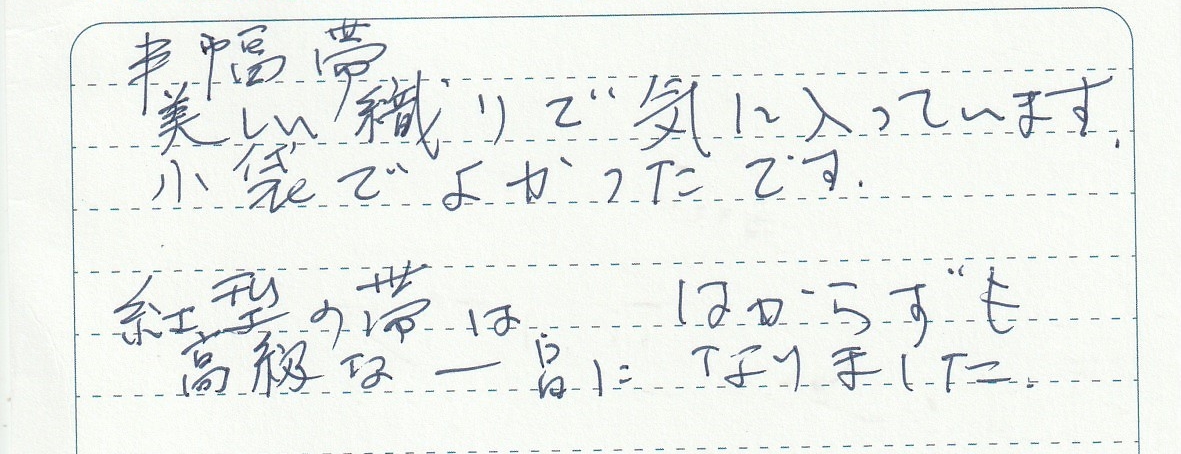 半幅帯
美しい織りで気に入っています.
小袋でよかったです.
紅型の帯は はからずも
高級な一品になりました.